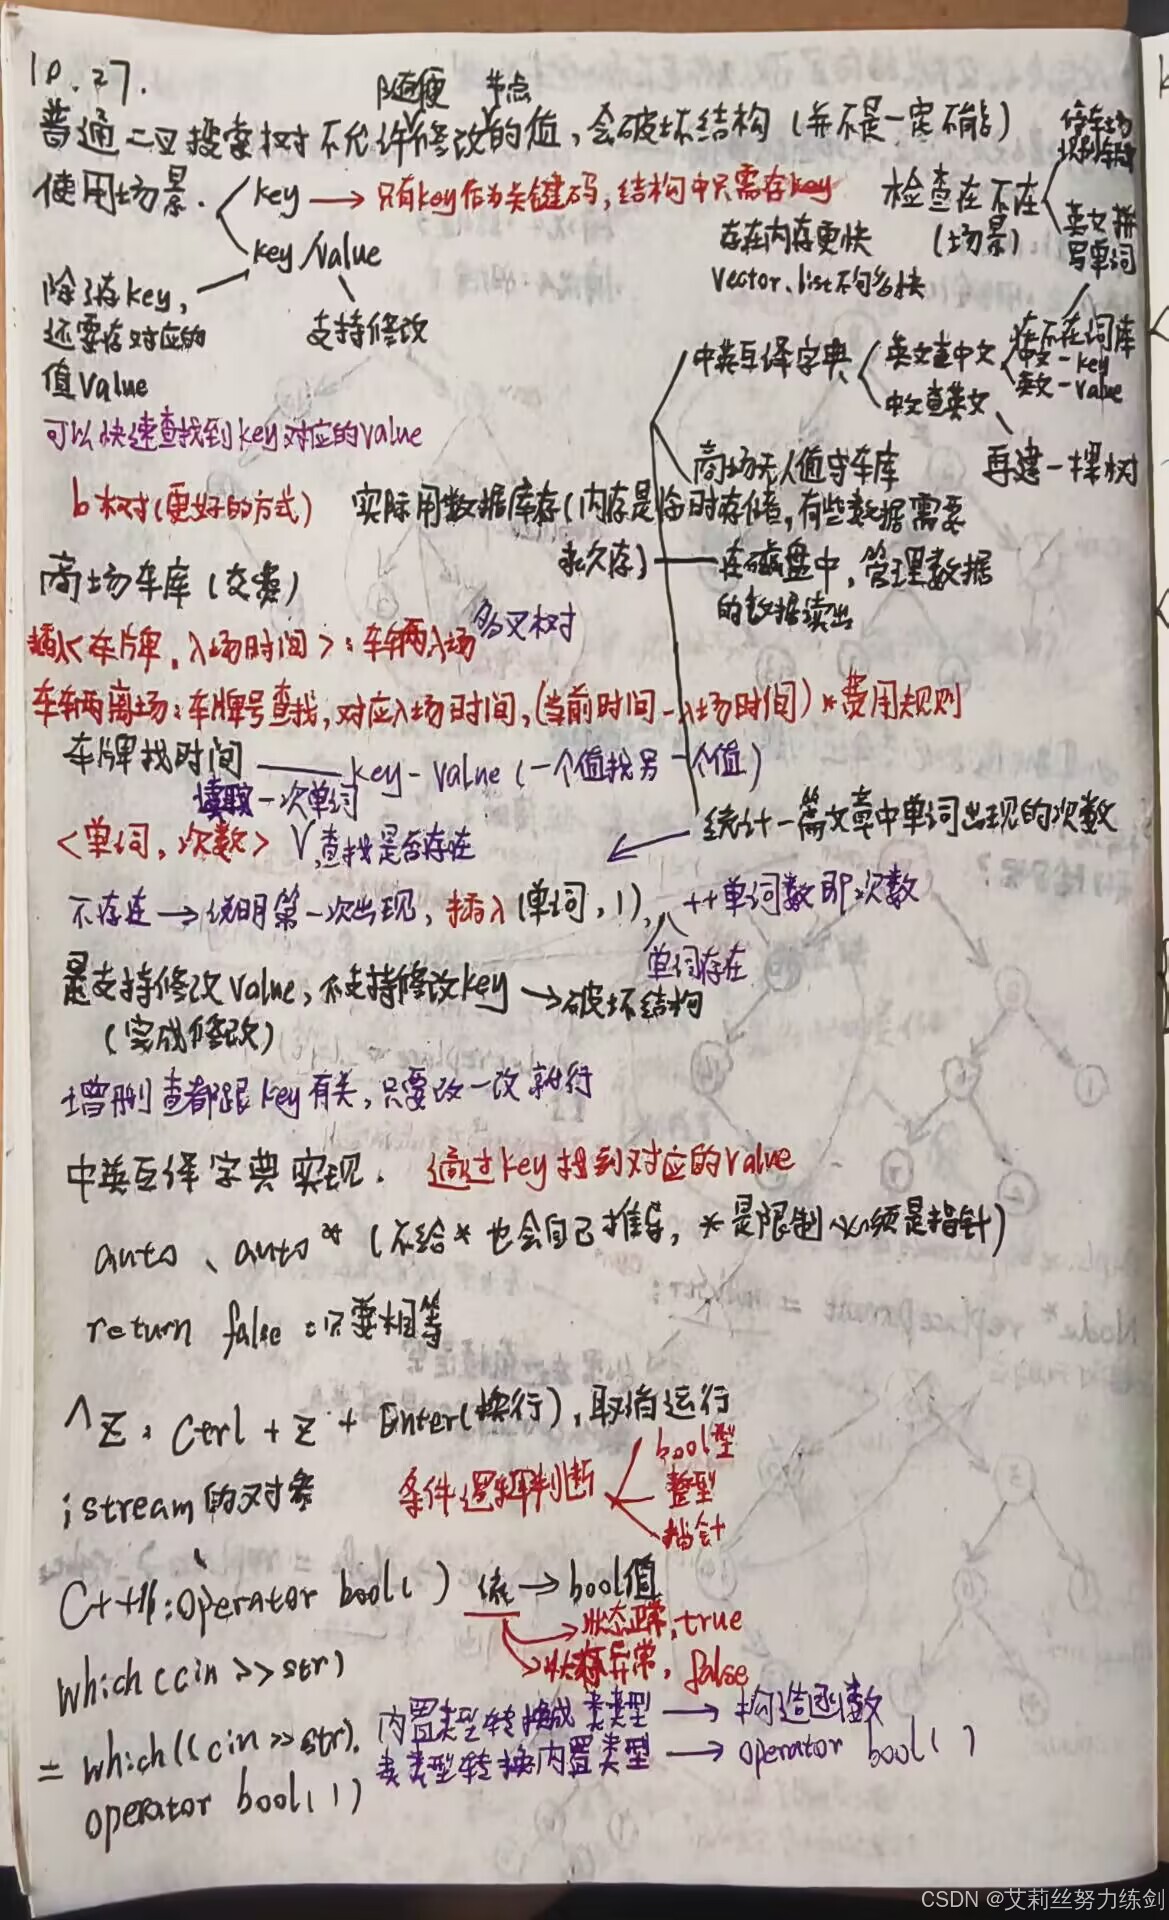 10.27.
普通二叉搜索树不允许随便修改节点的值，会破坏结构（并不是一定不能）
使用场景.
key → 只有key作为关键码，结构中只需存key
key/value
除了存key，
还要存对应的
值value
支持修改
可以快速查找到key对应的value
检查在不在
（场景）
停车场
英文拼
写单词
在不在词库
存在内存更快
vector、list不够多快
中英互译字典
英文查中文
中文-key
英文-value
中文查英文
再建一棵树
商场无人值守车库
b树（更好的方式）
实际用数据库存（内存是临时存储，有些数据需要
永久存）
在磁盘中，管理数据
的数据读出
多叉树
商场车库（交费）
插入<车牌，入场时间>：车辆入场
车辆离场：车牌号查找，对应入场时间，（当前时间-入场时间）*费用规则
车牌找时间 —— key-value（一个值找另一个值）
统计一篇文章中单词出现的次数
读取一次单词
<单词，次数> 查找是否存在
不存在→说明第一次出现，插入(单词，1)， ++单词数即次数
单词存在
是支持修改value，不支持修改key→破坏结构
（完成修改）
增删查都跟key有关，只要改一改就行
中英互译字典实现. 通过key找到对应的value
auto、auto*（不给*也会自己推导，*是限制必须是指针）
return false：只要相等
^Z：Ctrl+Z+Enter(换行)，取消运行
istream的对象
条件逻辑判断
bool型
整型
指针
C++11：operator bool() 流→bool值
状态正常，true
状态异常，false
which(cin>>str)
= which((cin>>str).
operator bool())
内置类型转换成类类型→构造函数
类类型转换内置类型→operator bool()
CSDN @艾莉丝努力练剑